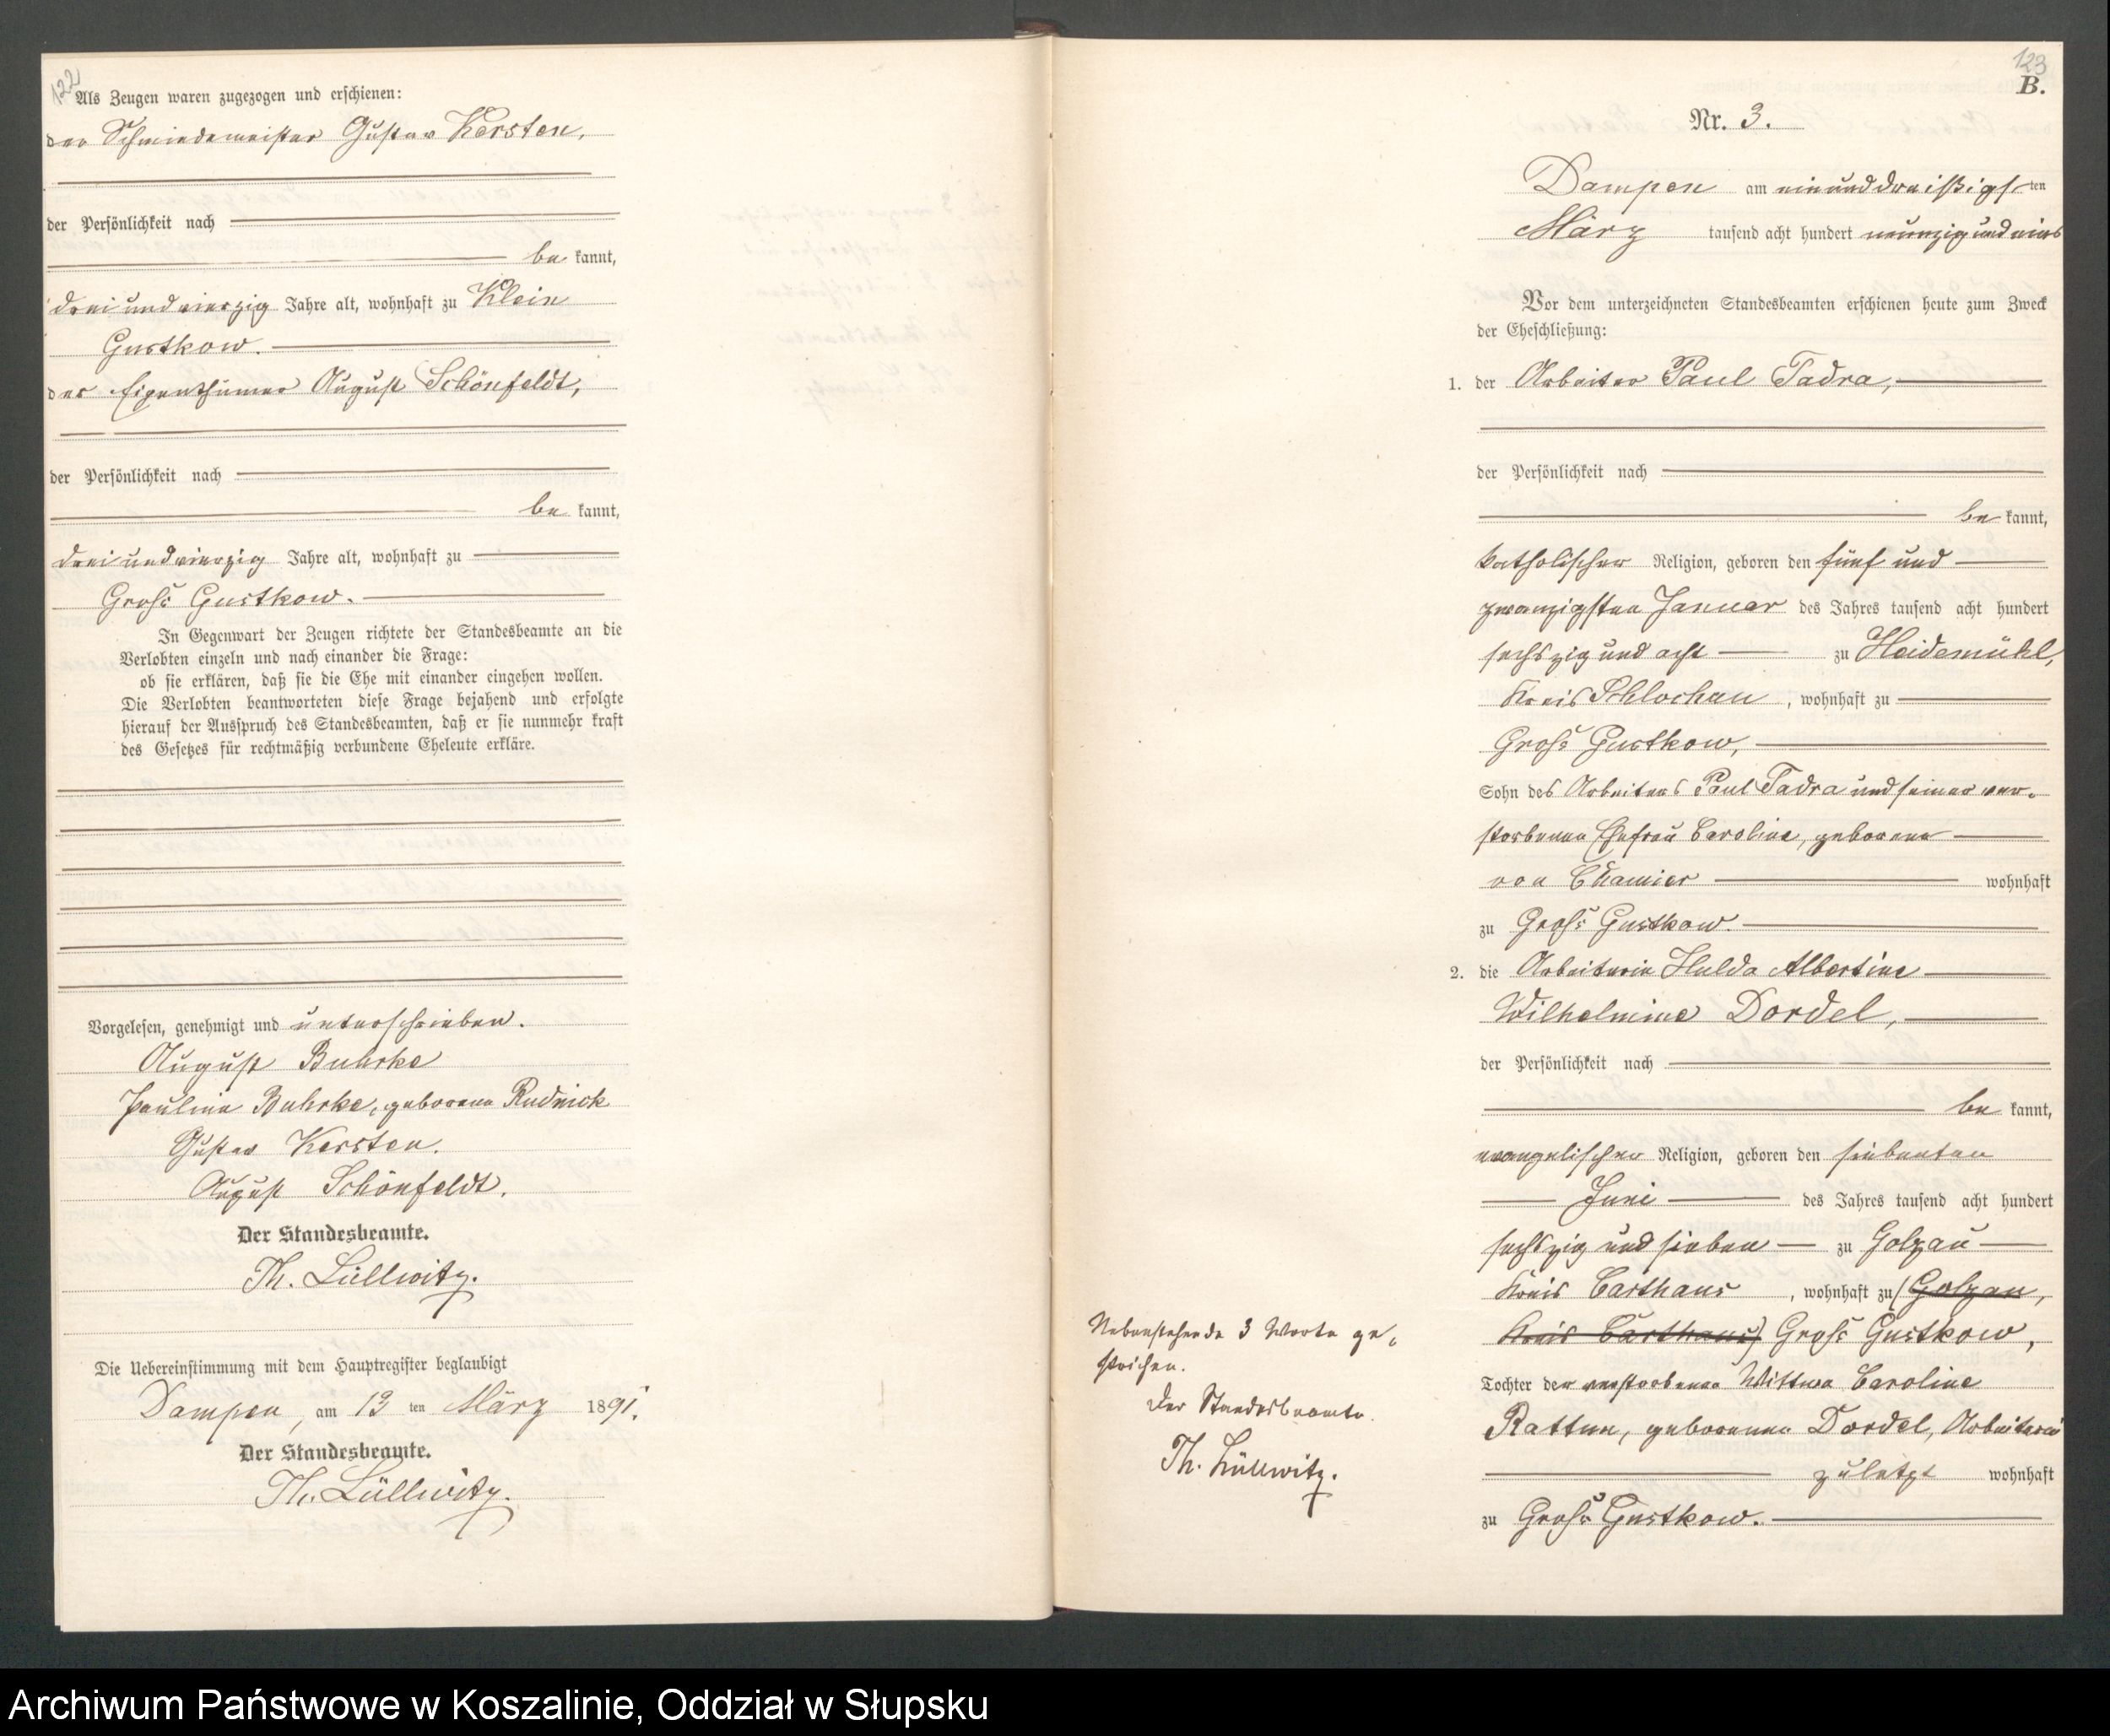 122
Als Zeugen waren zugezogen und erschienen:
der Schmiedemeister Gustav Kersten,
der Persönlichkeit nach
be kannt,
drei und vierzig Jahre alt, wohnhaft zu Klein
Gustkow.
der Eigenthümer August Schönfeldt,
der Persönlichkeit nach
be kannt,
drei und vierzig Jahre alt, wohnhaft zu
Groß Gustkow.
In Gegenwart der Zeugen richtete der Standesbeamte an die
Verlobten einzeln und nach einander die Frage:
ob sie erklären, daß sie die Ehe mit einander eingehen wollen.
Die Verlobten beantworteten diese Frage bejahend und erfolgte
hierauf der Ausspruch des Standesbeamten, daß er sie nunmehr kraft
des Gesetzes für rechtmäßig verbundene Eheleute erkläre.
Vorgelesen, genehmigt und unterschrieben.
August Buhrke
Pauline Buhrke, geborene Rudnick
Gustav Kersten.
August Schönfeldt.
Der Standesbeamte.
Th. Lüllwitz.
Die Uebereinstimmung mit dem Hauptregister beglaubigt
Dampen, am 13 ten März 1891.
Der Standesbeamte.
Th. Lüllwitz.
123
B.
Nr. 3.
Dampen am einunddreißigsten
März tausend acht hundert neunzig und eins
Vor dem unterzeichneten Standesbeamten erschienen heute zum Zweck
der Eheschließung:
1. der Arbeiter Paul Tadra,
der Persönlichkeit nach
be kannt,
katholischer Religion, geboren den fünf und
zwanzigsten Januar des Jahres tausend acht hundert
sechszig und acht zu Heidemühl,
Kreis Schlochau, wohnhaft zu
Groß Gustkow,
Sohn des Arbeiters Paul Tadra und seiner ver-
storbenen Ehefrau Caroline, geborene
von Chamier wohnhaft
zu Groß Gustkow.
2. die Arbeiterin Hulda Albertine
Wilhelmine Dordel,
der Persönlichkeit nach
be kannt,
evangelischer Religion, geboren den siebenten
Juni des Jahres tausend acht hundert
sechszig und sieben zu Golzau
Kreis Carthaus, wohnhaft zu (Golzau,
Kreis Carthaus) Groß Gustkow,
Tochter der verstorbenen Wittwe Caroline
Rattun, geborenen Dordel, Arbeiterin
zuletzt wohnhaft
zu Groß Gustkow.
Nebenstehende 3 Worte ge-
strichen.
Der Standesbeamte.
Th. Lüllwitz.
Archiwum Państwowe w Koszalinie, Oddział w Słupsku